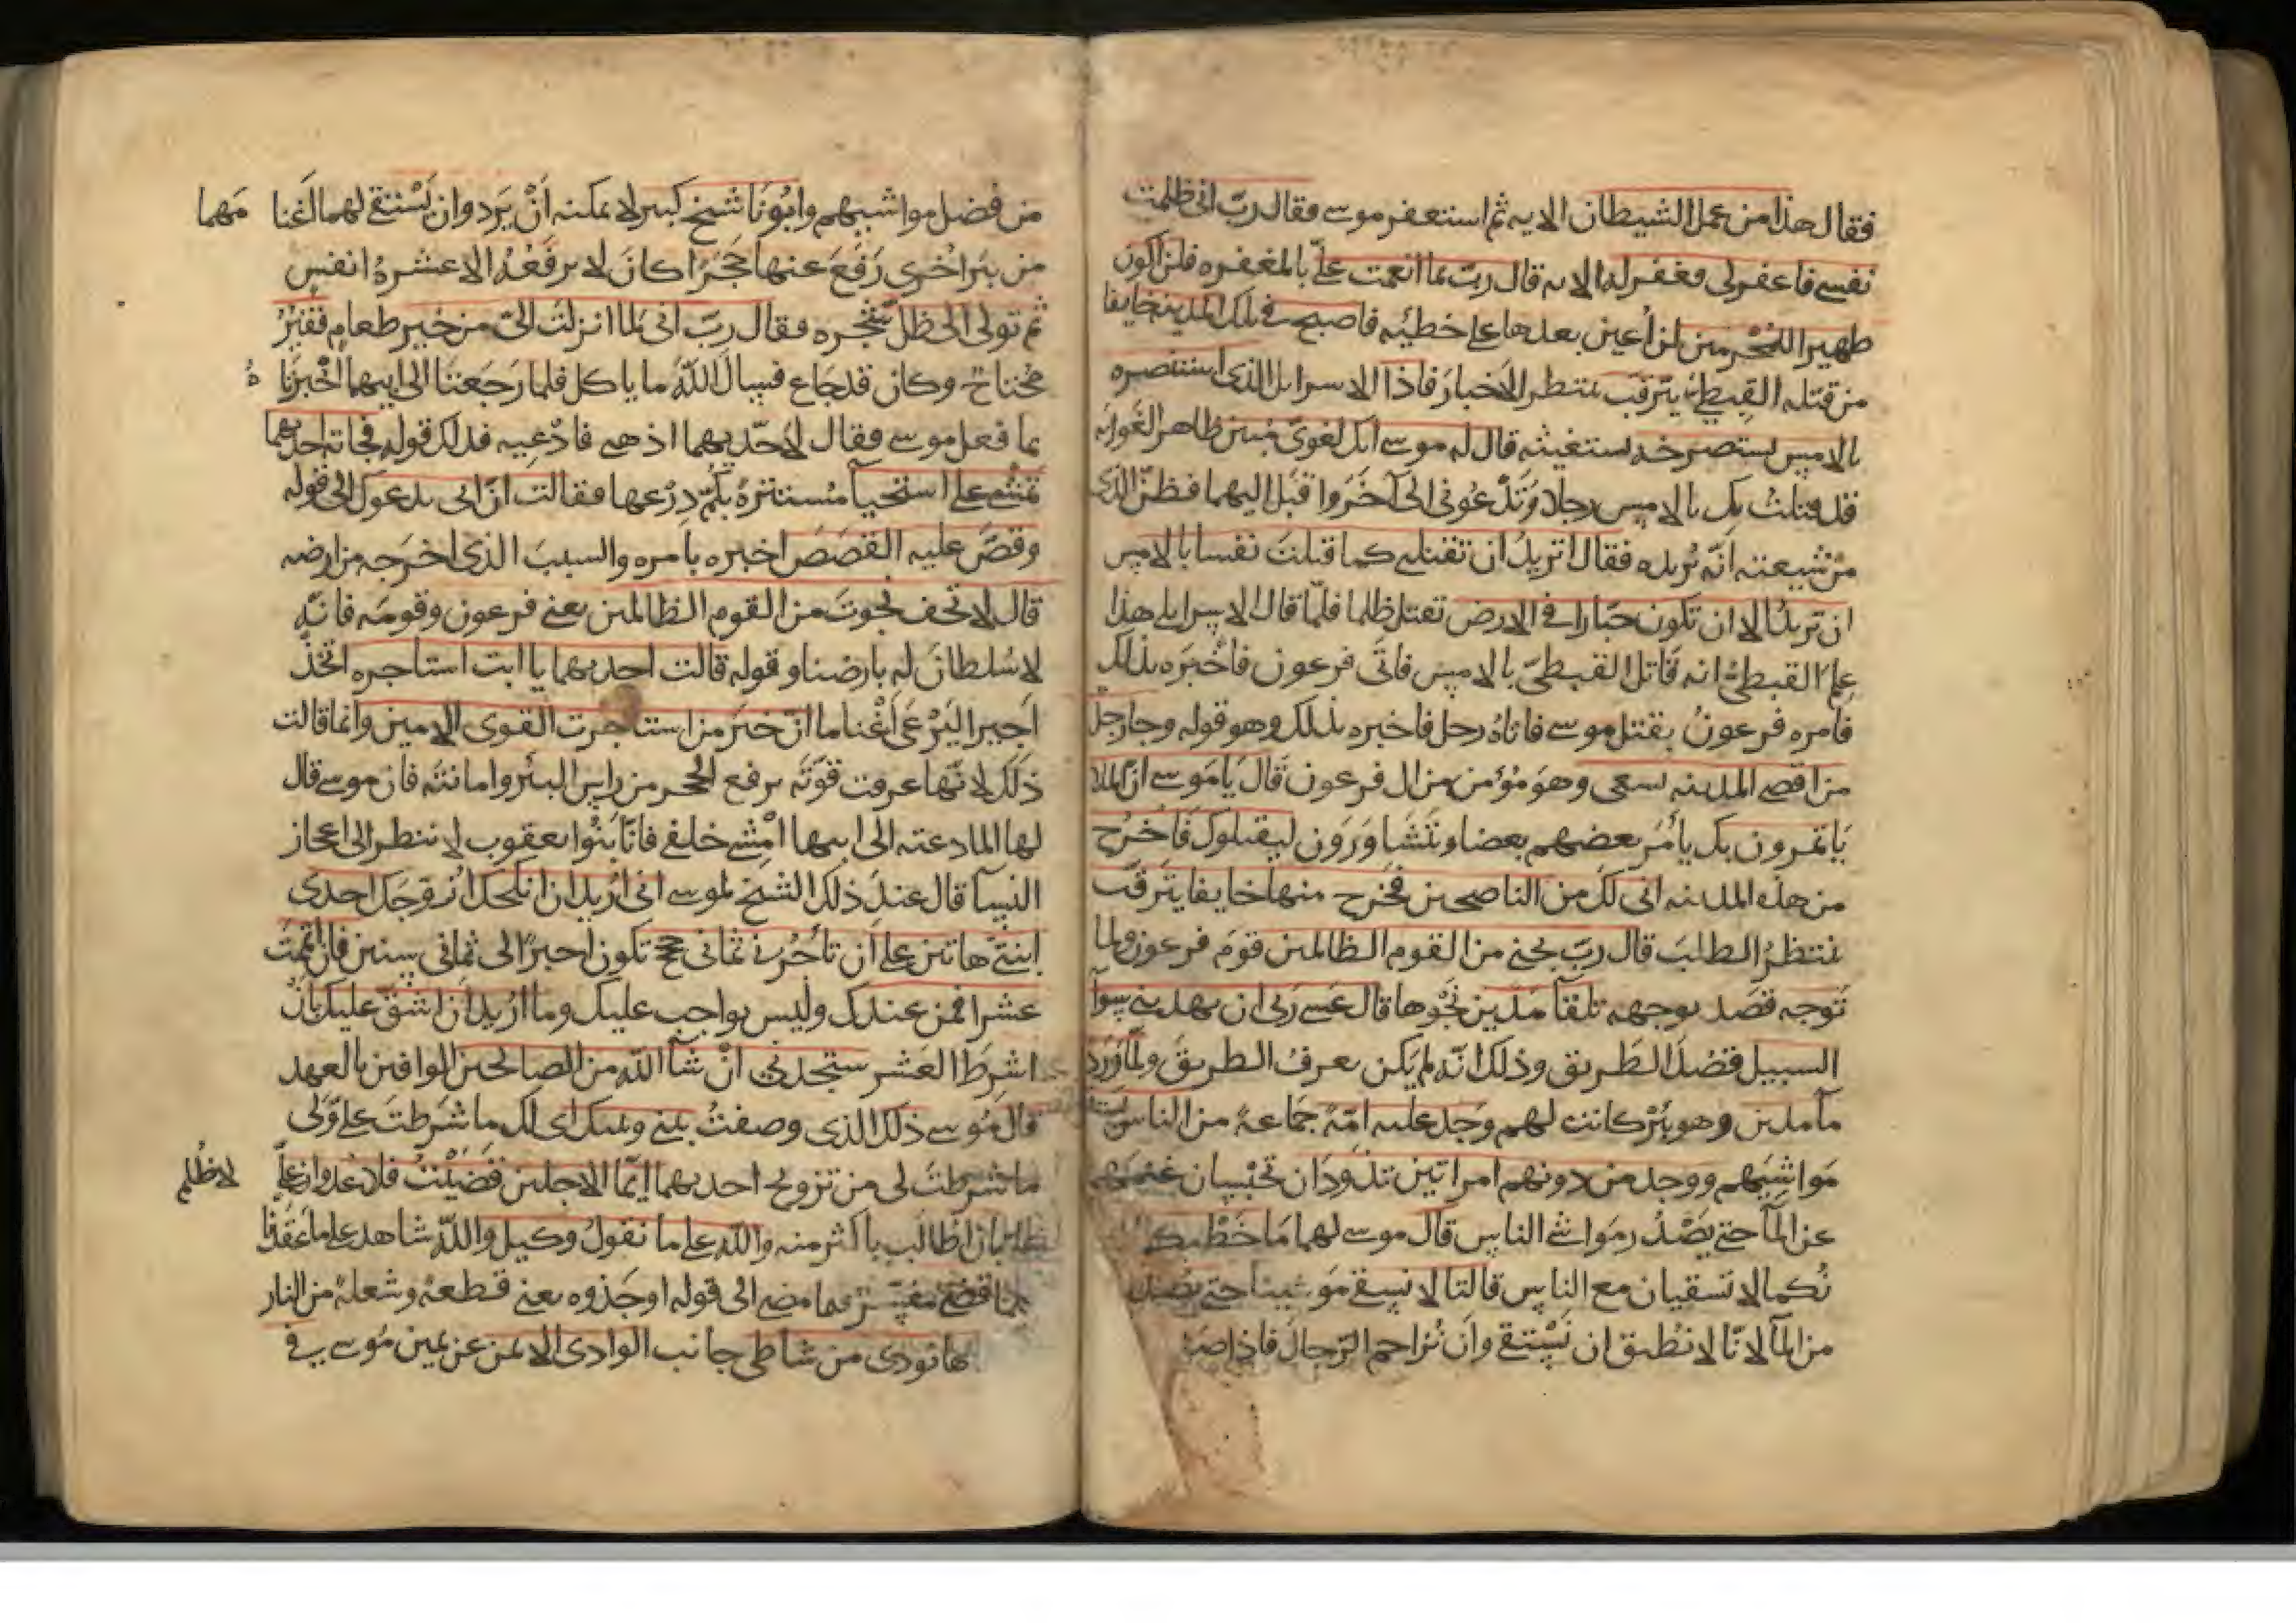 فقال هذا من عمل الشيطان الايه ثم استغفر موسى فقال رب انى ظلمت
نفسى فاغفرلى فغفر له الايه قال رب بما انعمت علىّ بالمغفره فلن اكون
ظهيرا للمجرمين لن اُعين بعدها على خطيئه فاصبح فى تلك المدينه خايفا
من قتله القبطىّ يترقب ينتظر الاخبار فاذا الاسرايلى الذى استنصره
بالامس يستصرخه يستغيثه قال له موسى انك لغوىّ مبين ظاهر الغوايه
قد قتلتُ بك بالامس رجلا وتَدْعُونى الى آخَر واقبل اليهما فظنّ الذى
من شيعته انّه يُريده فقال اتريدُ ان تقتلنى كما قتلت نفسا بالامس
ان تريدُ الا ان تكون جبّارا فى الارض تقتل ظلما فلمّا قال الاسرايلى هذا
عَلِمَ القبطىّ انه قاتل القبطىّ بالامس فاتَى فرعون فاخْبَره بذلك
فامره فرعونُ بقتل موسى فاتاهُ رجل فاخبره بذلك وهو قوله وجا رجل
من اقصى المدينه يسعى وهوَ مُؤمن من ال فرعون قَالَ يَا مُوسى انّ الملا
يَاتمرون بك يأمُر بعضهم بعضا ويَتَشَاوَرَون ليقتلوك فَاخْرُج
من هذه المدينه انى لكَ من الناصحين فخرج منها خايفا يترقّب
ينتظرُ الطلبَ قال ربّ نجنى من القوم الظالمين قوم فرعون ولما
تَوجه قصَد بوجهه تلقآ مَدين نَحْوها قال عَسى رَبى ان يهدينى سوآ
السبيل قصْدَ الطّريق وذلك انّه لم يكن يعرفُ الطريقَ ولمّا وَرَد
مآ مدين وهو بئرٌ كانت لهم وجَد عليه امّهً جمَاعهً من الناس يسقون
مَواشيَهم ووجد من دونهم امراتين تذودَان تحْبِسان غنمهما
عن المآ حتى يَصْدُر مَواشى الناس قال موسى لهما مَا خَطْبكما
نُكما لا تسقيان مع الناس قالتا لا نسقى مَوَاشينا حتى يصْدُر
من المآ لانّا لا نُطيق ان نَسْتقى وان نُزاحم الرّجالَ فاذا صَدَ
من فضل مواشيهم وابُونَا شيخ كبير لا يمكنه اَنْ يَرد وان يَسْتقى لهما اَغنا مَهما
من بئر اُخرى رَفَعَ عنها حَجَرًا كانَ لا يرفَعُه الا عشرهُ انفس
ثم تولى الى ظلّ شَجَره فقال ربّ انى لما انزلت الىّ من خير طعام فقيرٌ
محتاجٌ وكان قد جَاع فسال اللهَ ما ياكل فلما رَجَعَتَا الى ابيهما اَخْبرتَا هُ
بما فعل موسى فقال لاحَديهما اذهبى فادْعيه فذلك قوله فجاته احديهما
تمْشى على استحيآ مُستترهً بكمّ دِرْعها فقالت انّ ابى يدعوك الى قوله
وقصَّ عليه القَصَصَ اخبره بامره والسببَ الذى اخرَجه من ارضه
قال لا تخف نجوتَ من القوم الظالمين يعنى فرعون وقومَه فانّه
لا سُلطانَ له بارضنا وقوله قالت احديهما يا ابت استاجره اتّخذْ
اَجيرا ليَرْعَى اَغْنامنا انّ خيرَ من استاجرت القوى الامين وانما قالت
ذلك لانّها عرفت قوّتَه برفع الحجر من راس البئر وامانتَه فان موسى قال
لها لما دعته الى ابيها امْشى خلفى فانّا بَنُوا يعقوب لا ننظر الى اعجاز
النسآ قال عندَ ذلك الشيخ لموسى انى اُريد ان انكحك اُزوجَك احدى
ابنتىّ هاتين على اَن تأجُرنى ثمانى حجج تكون اجيرًا لى ثمانى سنين فان اتممتَ
عشرا فمن عندك وليس بواجب عليك وما اُريد اَن اشُقّ عليك بان
اشرِطَ العَشر ستجدنى انْ شآ اللهُ من الصالحين الوافين بالعهد
قال مُوسى ذلك الذى وصفتُ بينى وبينك اى لك ما شرَطتَ علىّ ولى
ما شرطتَ لى من تزويج احديهما ايّما الاجلين قضَيْتُ فلا عُدوان علىّ لا ظُلم
علىّ بان اُطالَب باكثر منه والله على ما نقولُ وكيل والله شاهد على ما عَقَدْنا
فلما قضى مفسّر فيما مضى الى قوله او جَذوه يعنى قطعهً وشعلهً من النار
اتاها نودى من شاطى جانب الوادى الايمن عن يمين مُوسى فى